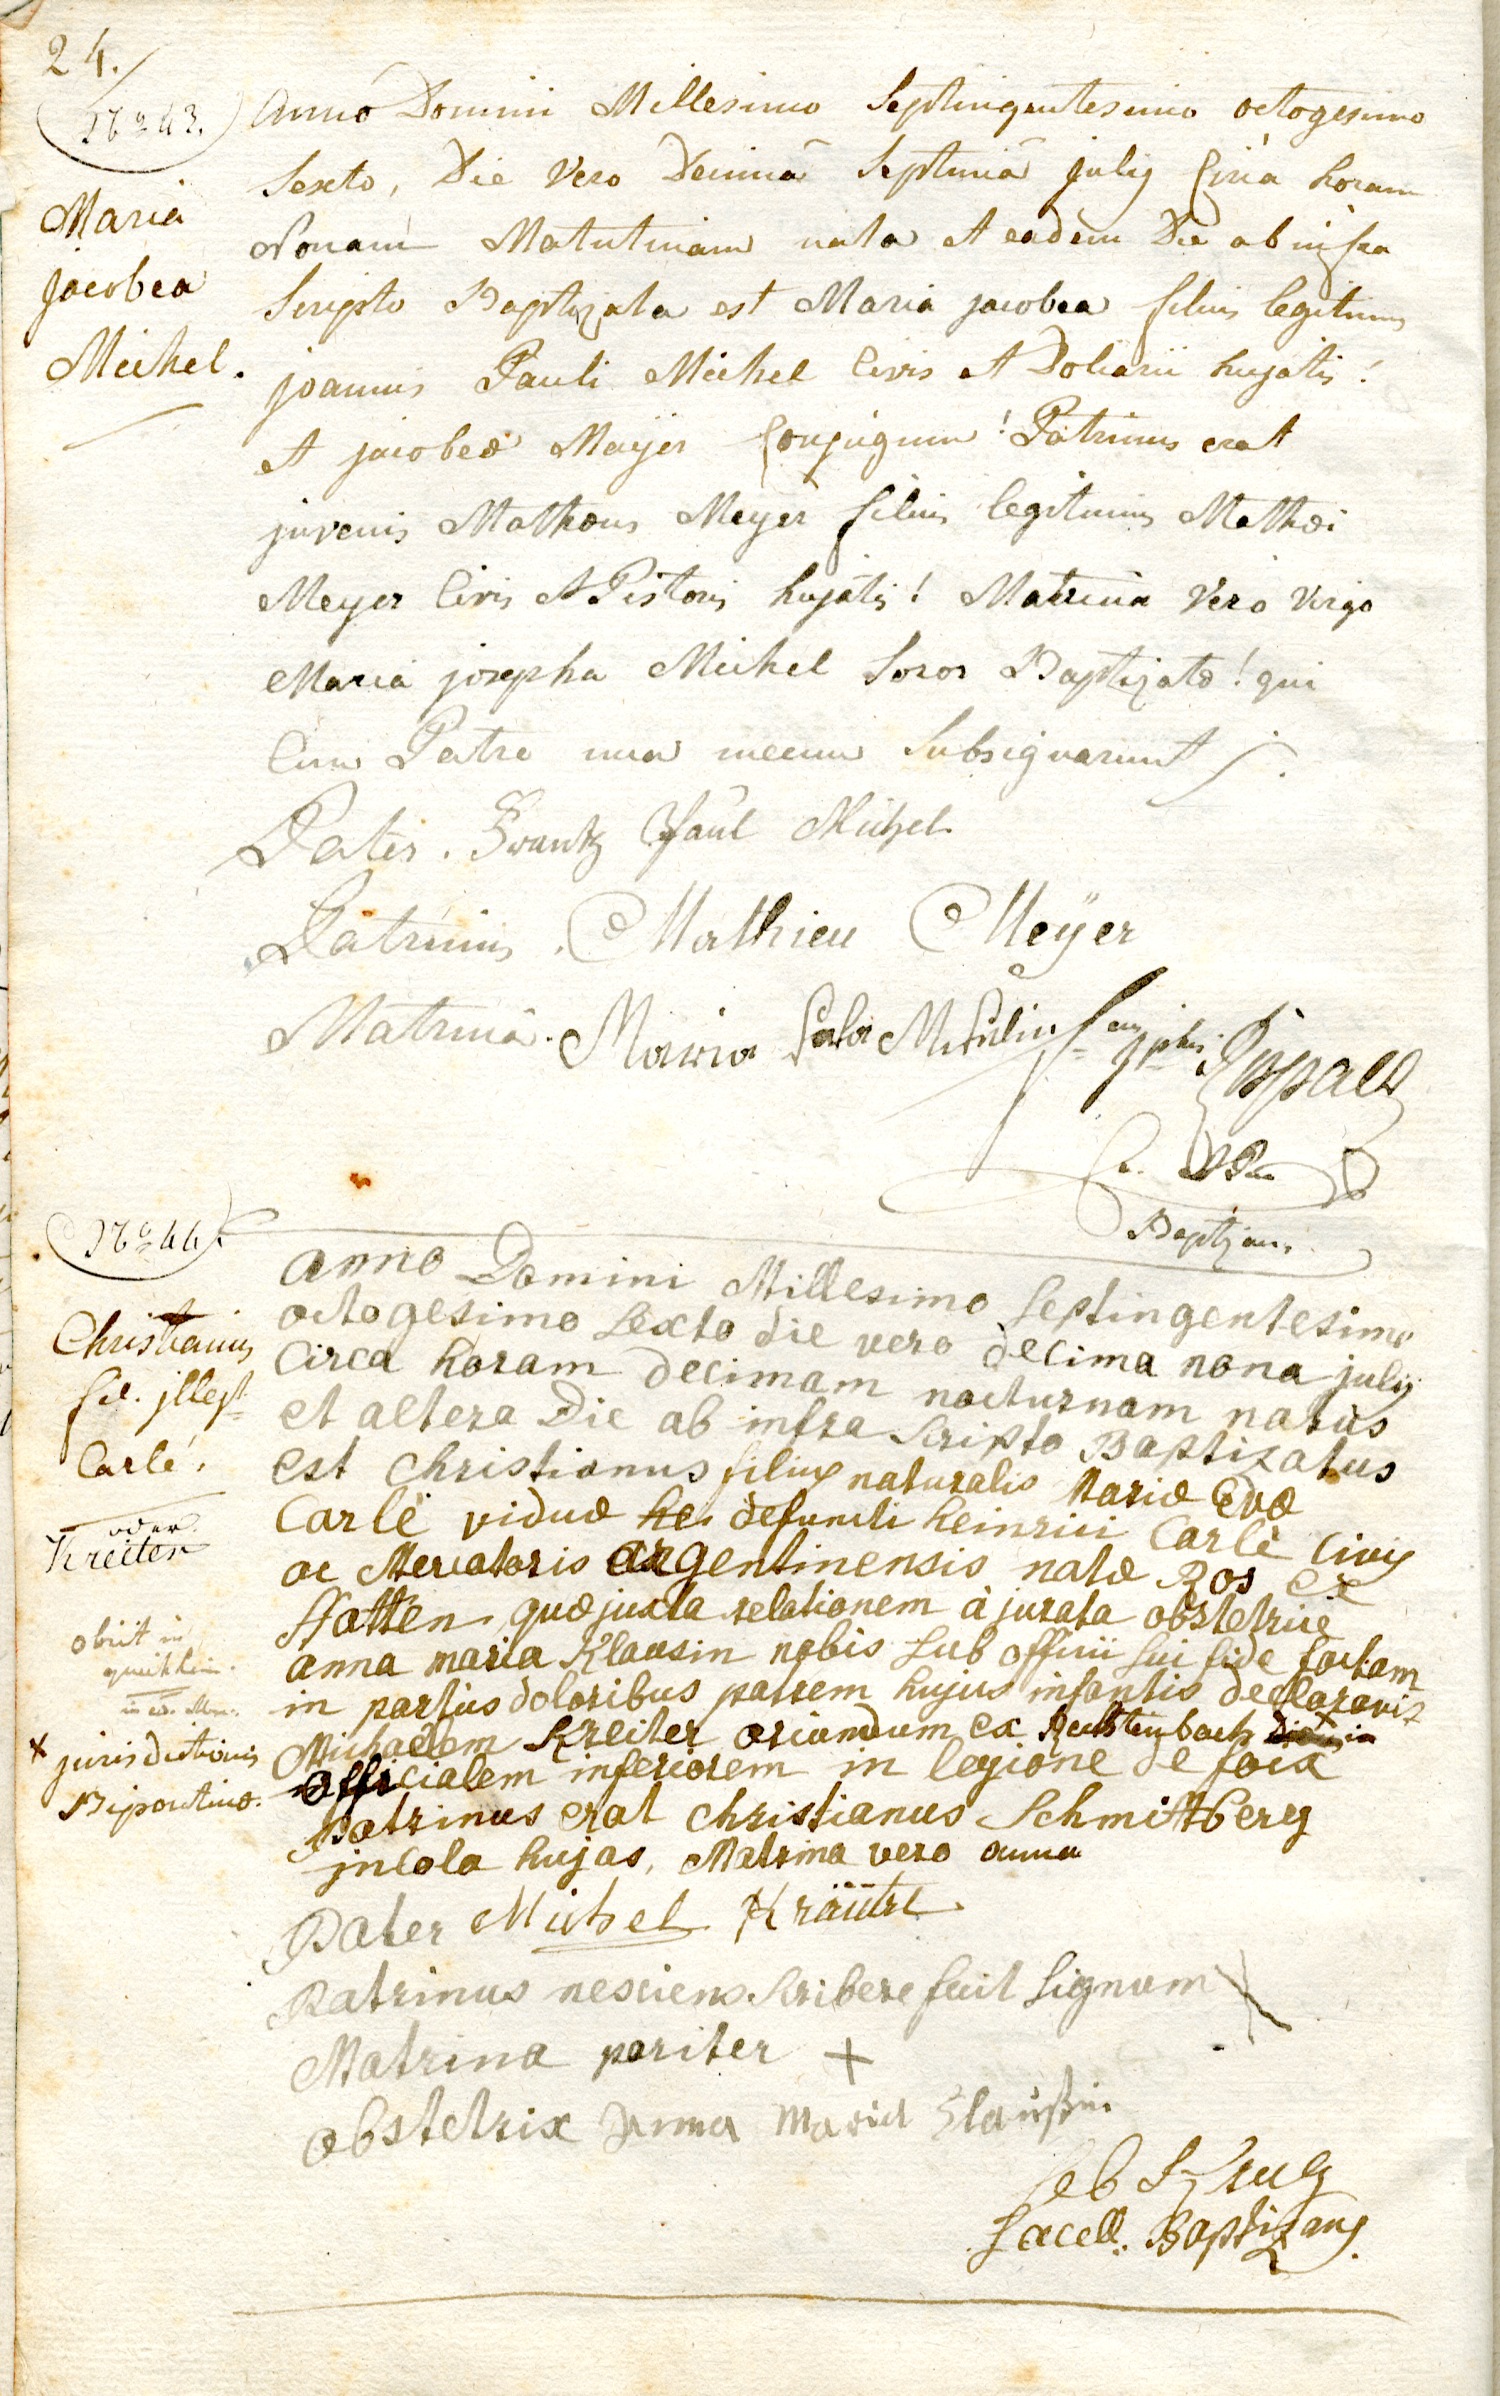 24.
No 43.
Maria
jacobea
Michel.
Anno Domini Millesimo Septingentesimo octogesimo
Sexto, Die Vero Decima Septima julij Circa horam
Nonam Matutinam nata et eadem Die ab infra
Scripto Baptizata est Maria jacobea filius legitimus
joannis Pauli Michel Civis et Doliarii hujatis!
et jacobeæ Mayer Conjugum! Patrinus erat
juvenis Mathæus Meyer filius legitimus Mathæi
Meyer Civis et Pistoris hujatis! Matrina Vero Virgo
Maria josepha Michel Soror Baptizatæ! qui
Cum Patre una mecum Subsignarunt
Pater. Frantz Paul Michel
Patrinus. Mathieu Meÿer
Matrina. Maria
Baptizans.
No 44.
Christianus
fil. jlleg.
Carlé.
oder
Kreiter
obiit in
* jurisdictionis
Bipontinæ.
Anno Domini Millesimo Septingentesimo
octogesimo Sexto die vero decima nona julij
Circa horam decimam nocturnam natus
et altera Die ab infra Scripto Baptizatus
est Christianus filius naturalis Mariæ Evæ
Carlé viduæ he defuncti heinrici Carlé Civis
ac Mercatoris argentinensis natæ Ros ex
Hatten quæ juxta relationem à jurata obstetrice
anna maria Klausin nobis Sub officii Sui fide factam
in partus doloribus patrem hujus infantis declaravit
Michaëlem Kreiter oriundum ex
officialem inferiorem in legione de foix
Patrinus erat Christianus Schmittberg
jncola hujas, Matrina vero anna
Pater Michel Kräütre
Patrinus nesciens Scribere fecit Signum
Matrina pariter +
obstetrix Anna Maria Klaußin
Seb Krug
Sacell. Baptizans.